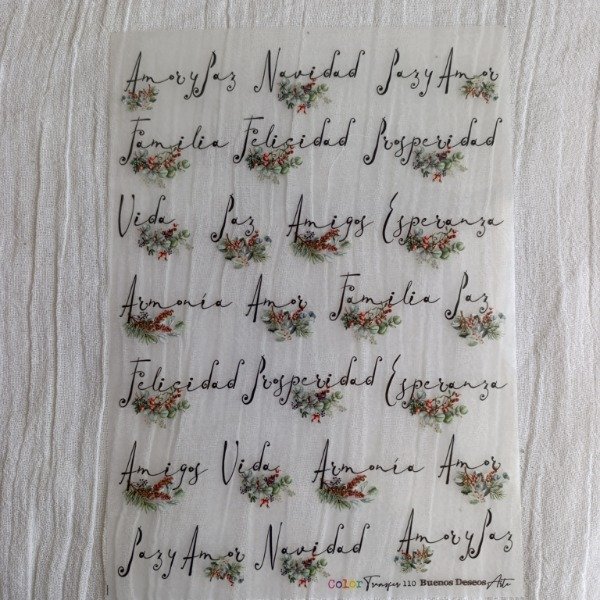 Amor y Paz Navidad Paz y Amor
Familia Felicidad Prosperidad
Vida Paz Amigos Esperanza
Armonía Amor Familia Paz
Felicidad Prosperidad Esperanza
Amigos Vida Armonía Amor
Paz y Amor Navidad Amor y Paz
Color Transfer 110 Buenos Deseos Arte